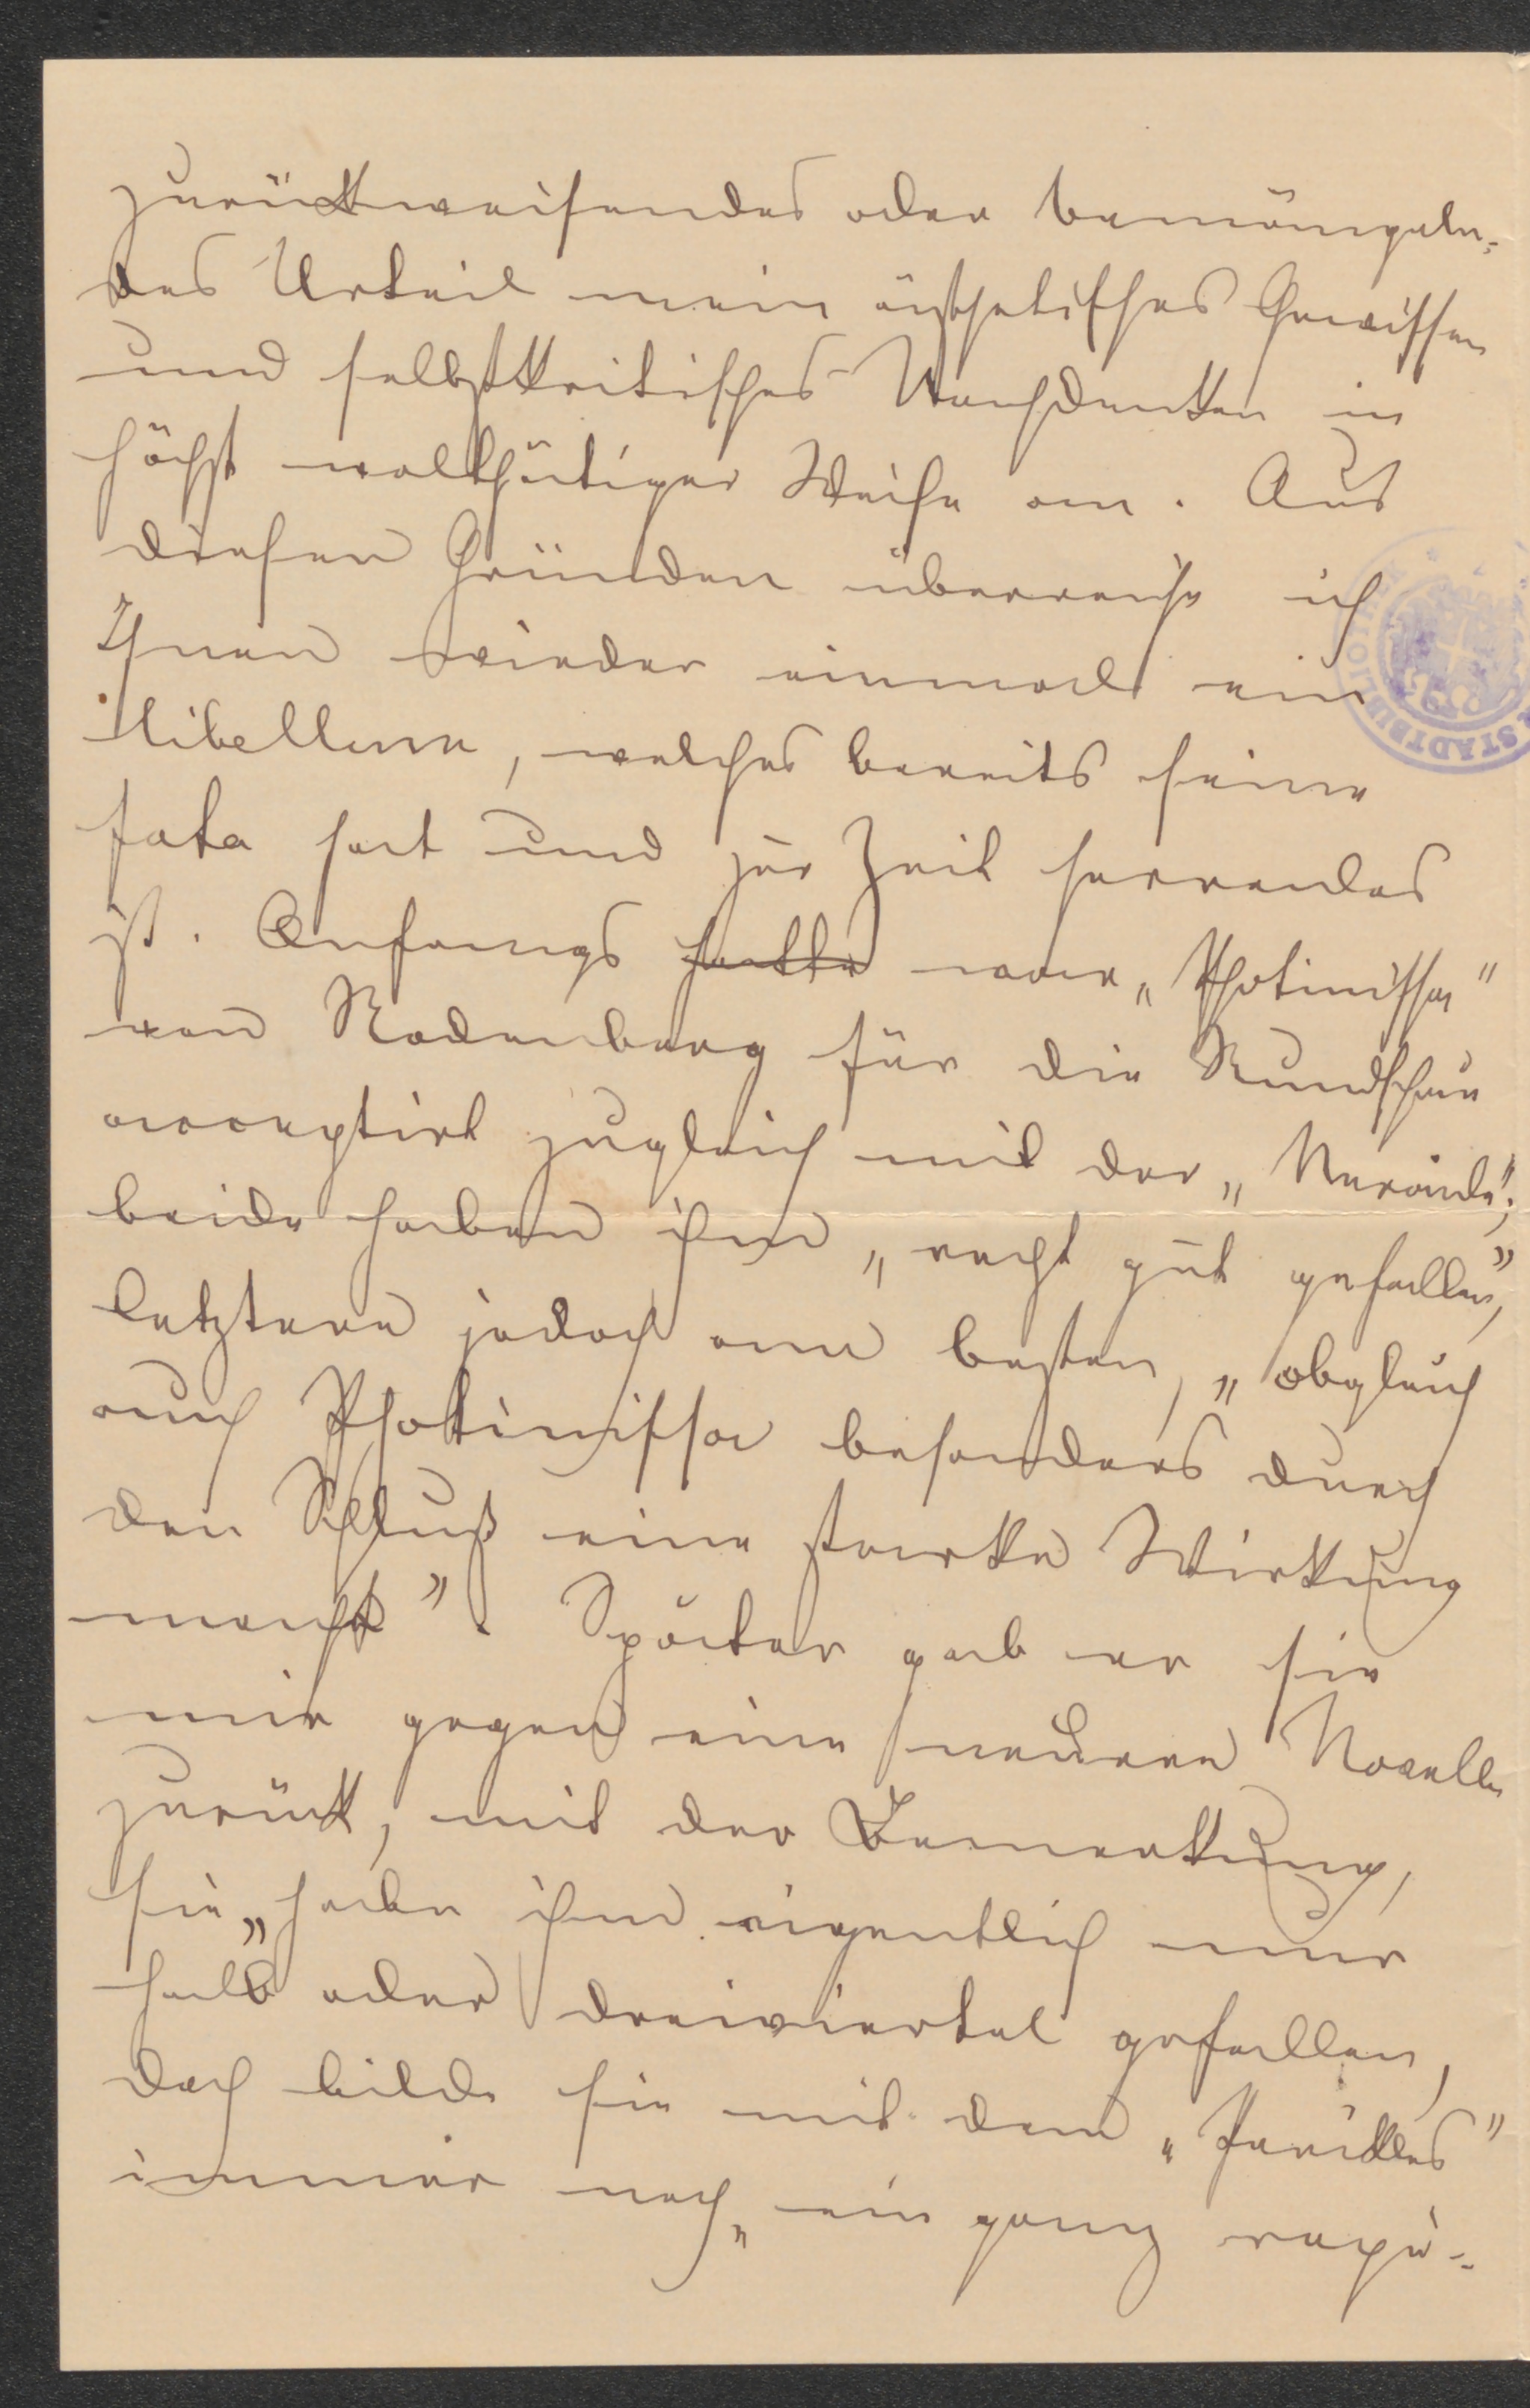 zurückweisendes oder bemängeln-
des Urteil mein ästhetisches Gewissen
und selbstkritisches Nachdenken in
höchst wolthätiger Weise an. Aus
diesen Gründen überreiche ich
Ihnen wieder einmal ein
libellum, welches bereits seine
fata hat und zur Zeit herrenlos
ist. Anfangs hatte war „Photinissa"
von Rodenberg für die Rundschau
acceptirt zugleich mit der „Neraide";
beide haben ihm „recht gut gefallen",
letztere jedoch am besten, „obgleich
auch Photinissa besonders durch
den Schluß eine starke Wirkung
macht". Später gab er sie
mir gegen eine neuere Novelle
zurück, mit der Bemerkung,
sie „habe ihm eigentlich nur
halb oder dreiviertel gefallen,
doch bilde sie mit dem „Perikles"
immer noch „ein ganz
STADTBIBLIOTHEK